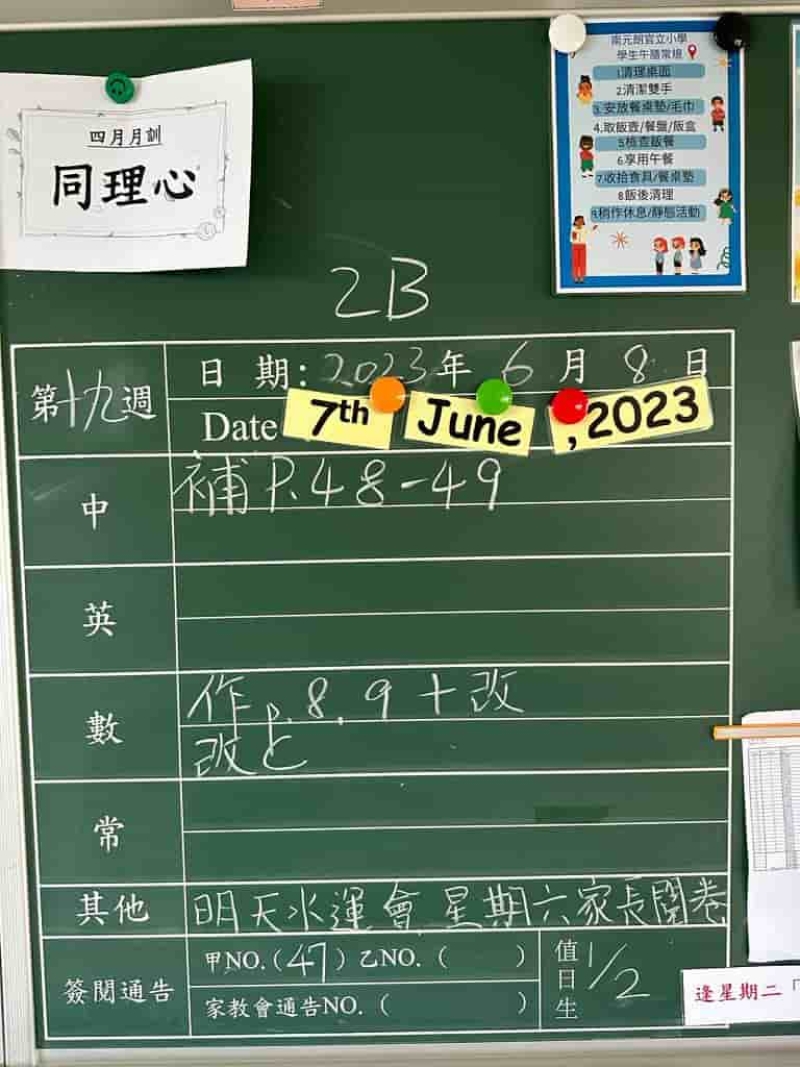 四月月訓
同理心
南元朗官立小學
學生午膳常規
1.清理桌面
2.清潔雙手
3.安放餐桌墊/毛巾
4.取飯壺/餐盤/飯盒
5.檢查飯餐
6.享用午餐
7.收拾食具/餐桌墊
8.飯後清理
9.稍作休息/靜態活動
2B
第十九週
日期:2023年6月8日
Date 7th June ,2023
中
補P.48-49
英
數
作P.8.9+改
改
常
其他
明天水運會 星期六家長閱卷
簽閱通告
甲NO.(47) 乙NO.( )
家教會通告NO.( )
值日生
1/2
逢星期二「